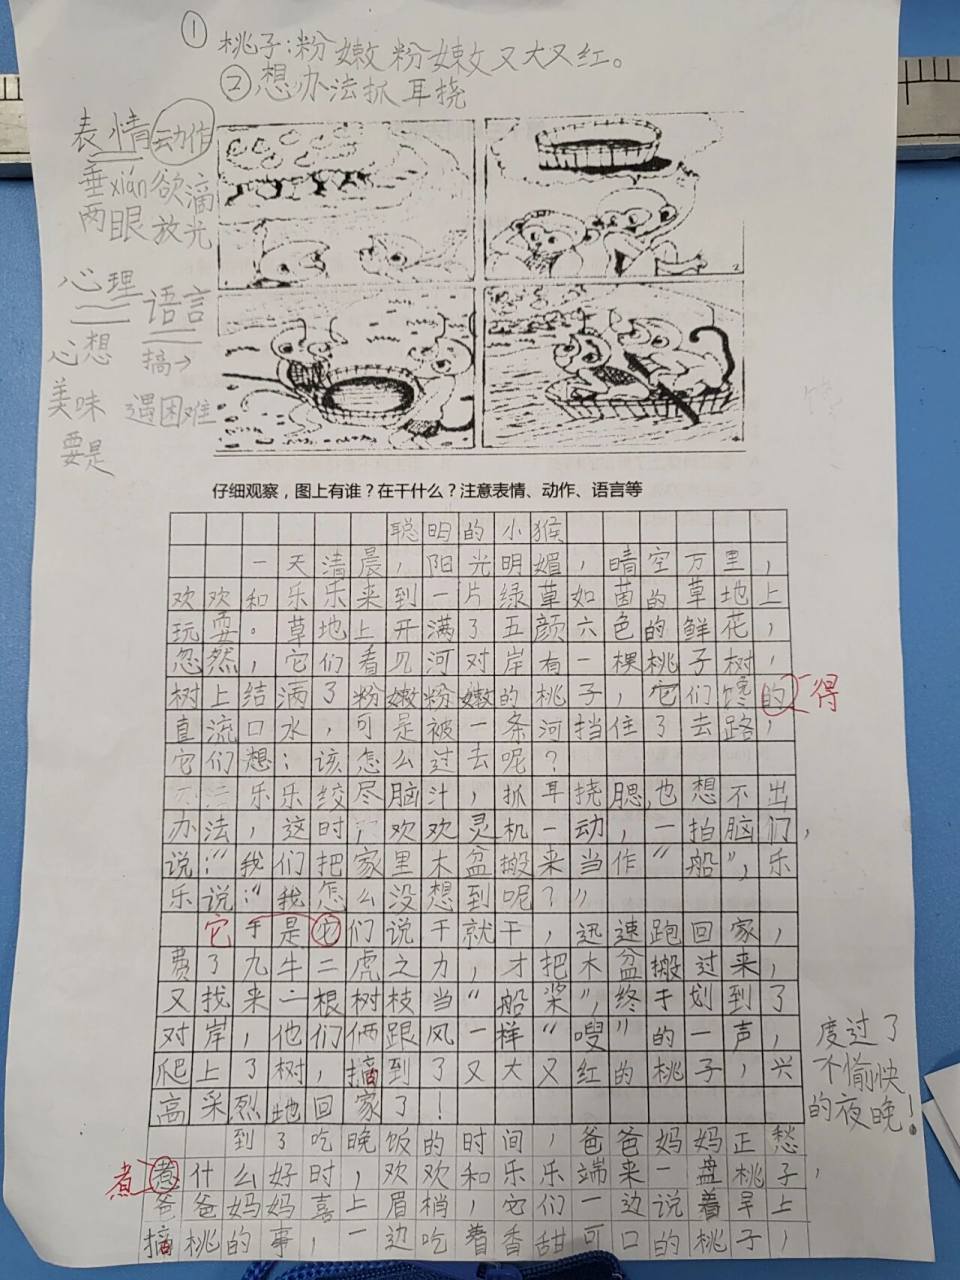 ① 桃子:粉嫩粉嫩又大又红。
②想办法抓耳挠
表情动作
垂xián欲滴
两眼放光
心理
语言
心想
搞→
美味 遇困难
要是
仔细观察，图上有谁？在干什么？注意表情、动作、语言等
聪明的小猴
一天清晨，阳光明媚，晴空万里，
欢欢和乐乐来到一片绿草如茵的草地上
玩耍。草地上开满了五颜六色的鲜花，
忽然，它们看见河对岸有一棵桃子树，
树上结满了粉嫩粉嫩的桃子，它们馋的 得
直流口水，可是被一条河挡住了去路，
它们想：该怎么过去呢？
乐乐绞尽脑汁，抓耳挠腮,也想不出
办法，这时，欢欢灵机一动，一拍脑们，
说：“我们把家里木盆搬来当作“船”，乐
乐说：“我怎么没想到呢？”
它于是它们说干就干，迅速跑回家，
费了九牛二虎之力，才把木盆搬过来，
又找来二根树枝当“船桨”，终于划到了
对岸，他们俩跟风一样“嗖”的一声，
爬上了树，摘到了又大又红的桃子，兴
高采烈地回家了！
到了吃晚饭的时间，爸爸妈妈正愁
煮 煮什么好时，欢欢和乐乐端来一盘桃子，
爸爸妈妈喜上眉梢，它们一边说着早上
摘桃的事，一边吃着香甜可口的桃子，
度过了
不愉快
的夜晚！